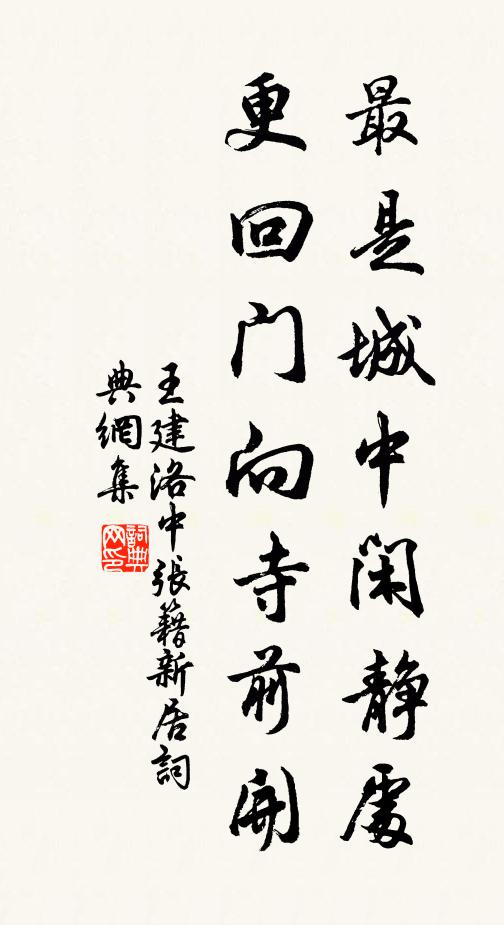 最是城中閑靜處
更回门向寺前開
王建洛中張籍新居詞
典網集
詞典网印